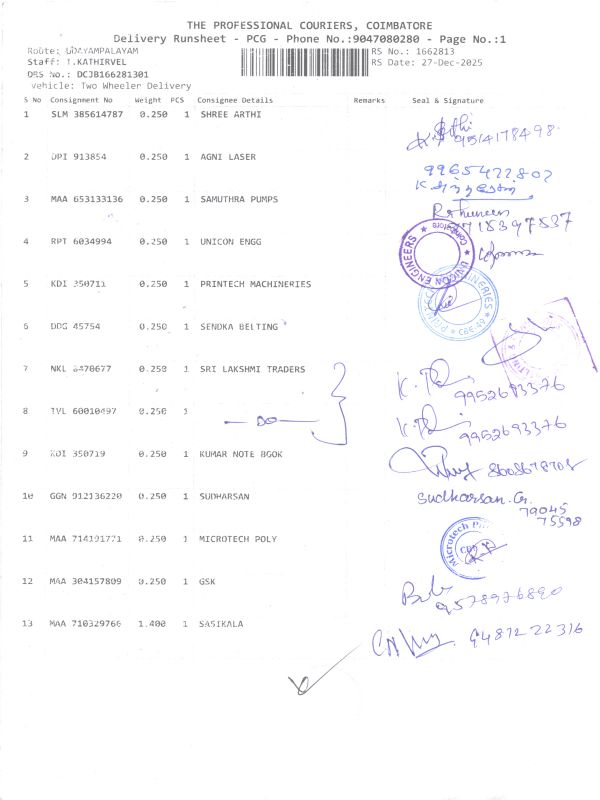 THE PROFESSIONAL COURIERS, COIMBATORE
Delivery Runsheet - PCG - Phone No.:9047080280 - Page No.:1
Route: UDAYAMPALAYAM
RS No.: 1662813
Staff: T.KATHIRVEL
RS Date: 27-Dec-2025
DRS No.: DCJB166281301
Vehicle: Two Wheeler Delivery
S No Consignment No Weight PCS Consignee Details Remarks Seal & Signature
1 SLM 385614787 0.250 1 SHREE ARTHI
9514178498
2 DPI 913854 0.250 1 AGNI LASER
9965422802
3 MAA 653133136 0.250 1 SAMUTHRA PUMPS
9718397537
4 RPT 6034994 0.250 1 UNICON ENGG
UNICON ENGINEERS ★ Coimbatore ★
5 KDI 350711 0.250 1 PRINTECH MACHINERIES
PRINTECH MACHINERIES ★ CBE-49 ★
6 DDG 45754 0.250 1 SENDKA BELTING
7 NKL 6470677 0.250 1 SRI LAKSHMI TRADERS
9952693376
8 TVL 60010497 0.250 1 DO
9952693376
9 KDI 350719 0.250 1 KUMAR NOTE BOOK
10 GGN 912136220 0.250 1 SUDHARSAN
Sudharsan.G.
79045
75598
11 MAA 714191771 0.250 1 MICROTECH POLY
Microtech
12 MAA 304157809 0.250 1 GSK
9578976890
13 MAA 710329766 1.400 1 SASIKALA
94872 22316